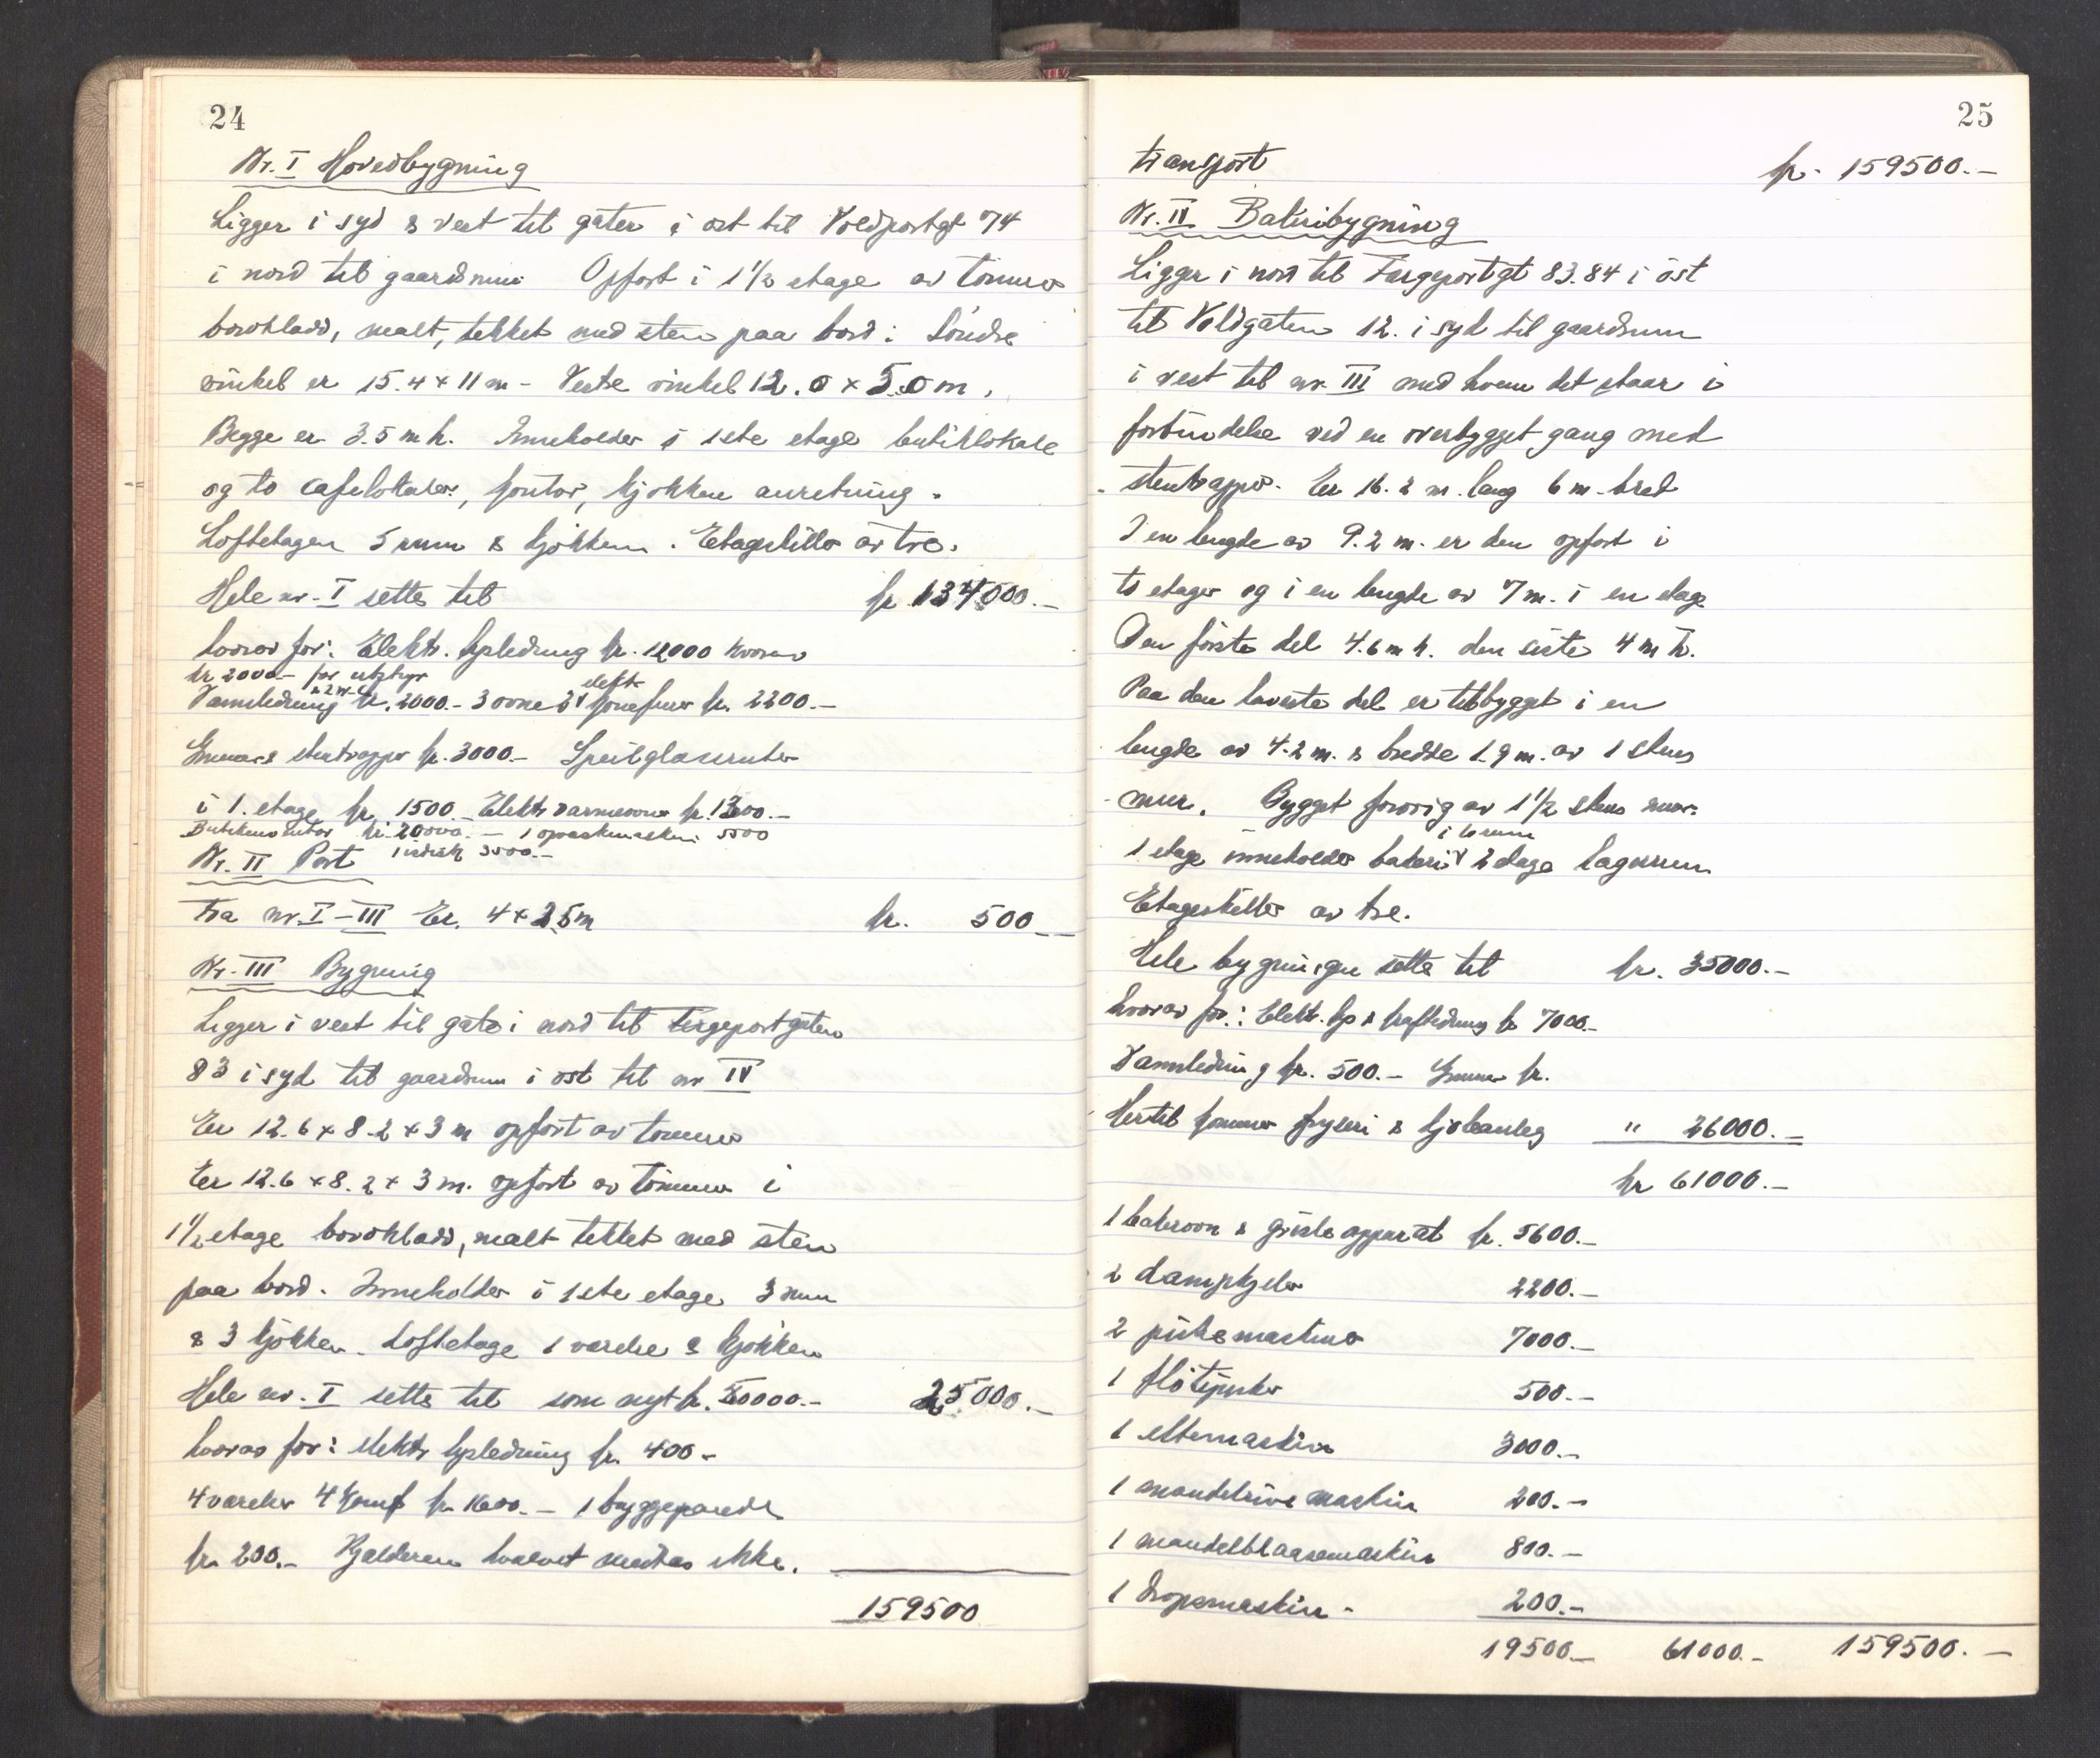 24
Nr. I Hovedbygning
Ligger i syd & vest til gater i øst til Voldportgt 74
i nord til gaardsrum Opført i 1 1/2 etage av tømmer
bordkladd, malt, tekket med sten paa bord: Søndre
vinkel er 15.4 x 11 m - Vestre vinkel 12.0 x 5.0 m.
Begge er 3.5 m h. Inneholder i 1ste etage butiklokale
og to cafelokaler, kontor, kjøkken anretning.
Loftetagen 5 rum & kjøkken. Etageskille av tre.
Hele nr. I settes til kr 134500.-
hvorav for: Elektr. lysledning kr. 12000 hvorav
kr 2000- for utstyr
Vannledning & 2 W.C. kr. 2000.- 3 ovne 2 elektr. komfurer kr. 2200.-
Grunnmur & stentrapper kr. 3000.- Speilglassruter
i 1. etage kr. 1500.- Elektr varmeovner kr. 1300.-
Butikkinventar kr. 20000.- 1 opvaskmaskin 5500
Nr. II Port
fra nr. I - III Er. 4 x 2.5 m kr. 500.-
Nr. III Bygning
Ligger i vest til gate i nord til Færgeportgaten
83 i syd til gaardsrum i øst til nr IV
Er 12.6 x 8.2 x 3 m opført av tømmer
Er 12.6 x 8.2 x 3 m. opført av tømmer i
1 1/2 etage bordkladd, malt tekket med sten
paa bord. Inneholder i 1ste etage 3 rum
& 3 kjøkken. Loftetage 1 værelse & kjøkken
Hele nr. I settes til som nyt kr. 50000.- 25000.-
hvorav for: elektr lysledning kr. 400.-
4 værelser 4 komf kr. 1600.- 1 bryggepande
kr. 200.- Kjelderen hvælvet medtas ikke.
159500
25
transport kr. 159500.-
Nr. IV Bakeribygning
Ligger i nord til Færgeportgt 83.84 i øst
til Voldgaten 12. i syd til gaardsrum
i vest til nr. III med hvem det staar i
forbindelse ved en overbygget gang med
stentrapper. Er 16.2 m. lang 6 m. bred
I en lengde av 9.2 m. er den opført i
to etager og i en lengde av 7 m. i en etage
Den første del 4.6 m h. den siste 4 m h.
Paa den laveste del er tilbygget i en
lengde av 4.2 m. & bredde 1.9 m. av 1 stens
mur. Bygget forøvrig av 1 1/2 stens mur.
1 etage inneholder bakeri i to rum 2 etage lagerrum
Etageskiller av tre.
Hele bygningen settes til kr. 35000.-
hvorav for: Elektr. lys & kraftledning kr 7000.-
Vannledning kr. 500.- Grunnmur kr.
Hertil kommer fryseri & kjøleanlæg " 26000.-
kr 61000.-
1 bakerovn & grisle apparat kr. 5600.-
2 dampkjeler 2200.-
2 piskemaskiner 7000.-
1 fløtepisker 500.-
1 eltemaskin 3000.-
1 mandelrivemaskin 200.-
1 mandelblaasemaskin 800.-
1 dropsmaskin - 200.-
19500.- 61000.- 159500.-